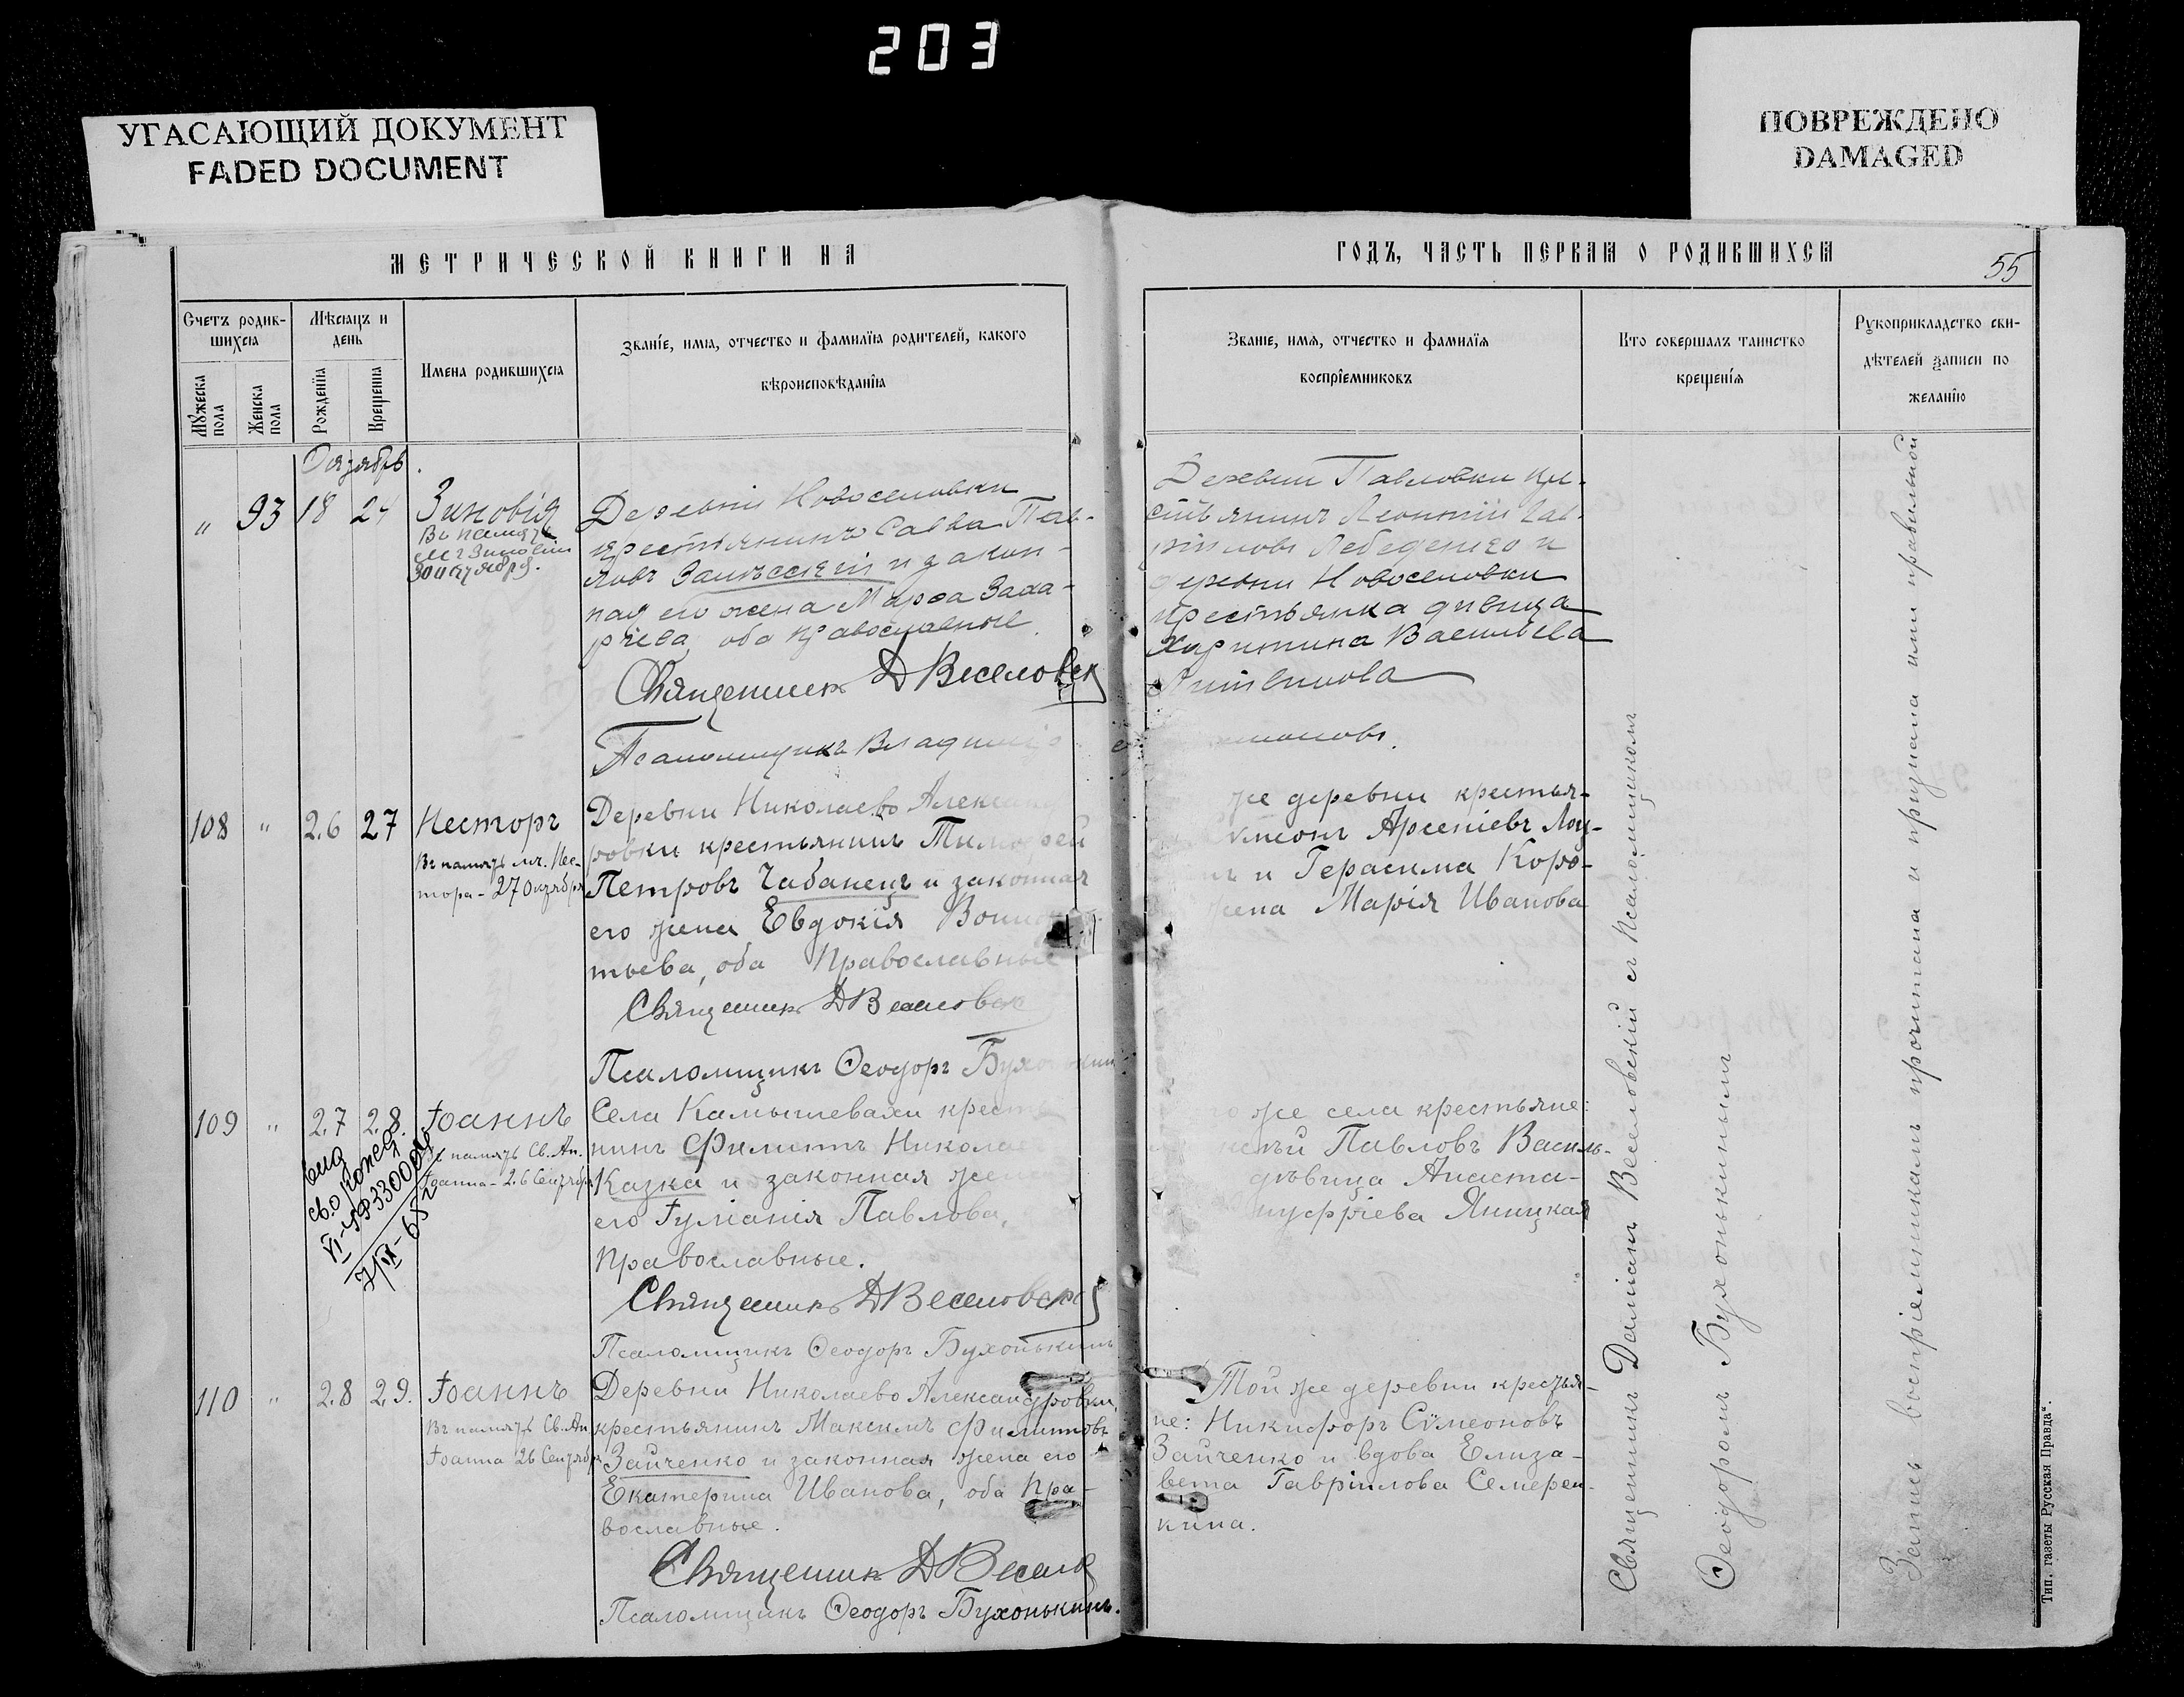 203
УГАСАЮЩИЙ ДОКУМЕНТ
FADED DOCUMENT
ПОВРЕЖДЕНО
DAMAGED
МЕТРИЧЕСКОЙ КНИГИ НА
ГОДЪ, ЧАСТЬ ПЕРВАЯ О РОДИВШИХСЯ
55
Счетъ родив-
шихся
Мѣсяцъ и
день
Мужеска
пола
Женска
пола
Рожденїя
Крещенїя
Имена родившихся
Званїе, имя, отчество и фамилїя родителей, какого
вѣроисповѣданїя
Званїе, имя, отчество и фамилїя
воспрїемниковъ
Кто совершалъ таинство
крещенїя
Рукоприкладство сви-
дѣтелей записи по
желанїю
Октябрь.
" 93 18 24 Зиновія
Въ память
мч Зиновіи
30 октября.
Деревни Новоселовки
крестьянинъ Савва Пав-
ловъ и закон-
ная его жена Марѳа Заха-
ріева, оба православные.
Священникъ Д Веселовск
Псаломщикъ
Деревни Павловки кре-
стьянинъ Леонтій Гав-
ріиловъ Лебеденко и
деревни Новоселовки
крестьянка дѣвица
Харитина Васильева
Литвинова
108 " 26 27 Несторъ
Въ память мч. Нес-
тора - 27 Октября
Деревни Николаево Алексан
ровки крестьянинъ Тимофей
Петровъ Чабанецъ и законная
его жена Евдокія
тьева, оба Православные
Священникъ Д Веселовск
Псаломщикъ Ѳеодоръ
же деревни крестья-
Арсеніевъ Лоц-
и Герасима Коро-
жена Марія Иванова
109 " 27 28. Іоаннъ
Въ память Св. Ап.
Іоанна - 26 Сентябр
VI-
Села Камышевахи крест
нинъ Филиппъ Никола
Казка и законная же
его Іуліанія Павлова,
Православные.
Священникъ Д Веселовск
Псаломщикъ Ѳеодоръ Бухонькинъ
же села крестьяне:
Павловъ Василь-
дѣвица Анаста-
нуфріева Яницкая
110 " 28 29. Іоаннъ
Въ память Св. Ап.
Іоанна 26 Сентябр
Деревни Николаево Александровки,
крестьянинъ Максимъ Филипповъ
Зайченко и законная жена его
Екатерина Иванова, оба Пра-
вославные.
Священникъ Д Весел
Псаломщикъ Ѳеодоръ Бухонькинъ.
Той же деревни крестья-
не: Никифоръ Сѵмеоновъ
Зайченко и вдова Елиза-
вета Гавріилова Семерен-
кина.
Священникъ Даміанъ Веселовскій съ Псаломщикомъ
Ѳеодоромъ Бухонькинымъ
Запись воспріемникамъ прочитана и признана ими правильной
Тип. газеты Русская Правда".